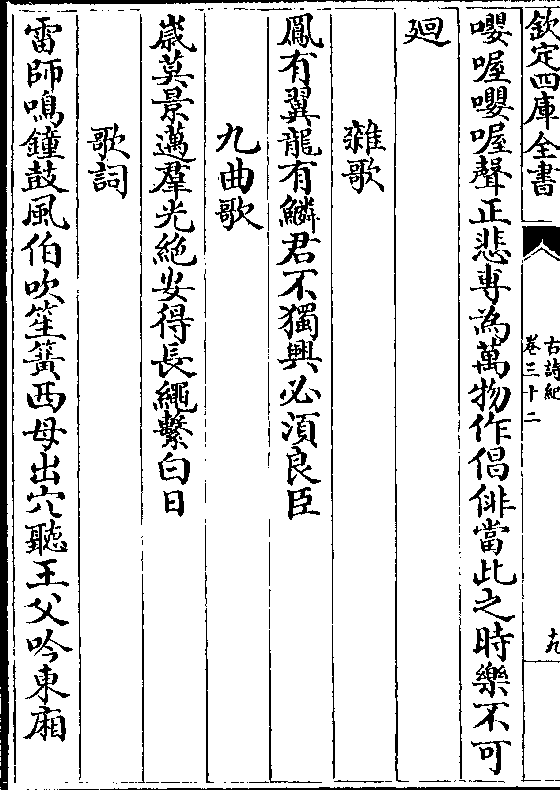 欽定四庫全書
古詩紀
卷三十二
十九
嚶喔嚶喔聲正悲專為萬物作倡俳當此之時樂不可
廻
雜歌
鳳有翼龍有鱗君不獨興必須良臣
九曲歌
歲莫景邁羣光絶安得長繩繫白日
歌詞
雷師鳴鐘鼓風伯吹笙簧西母出穴聽王父吟東廂